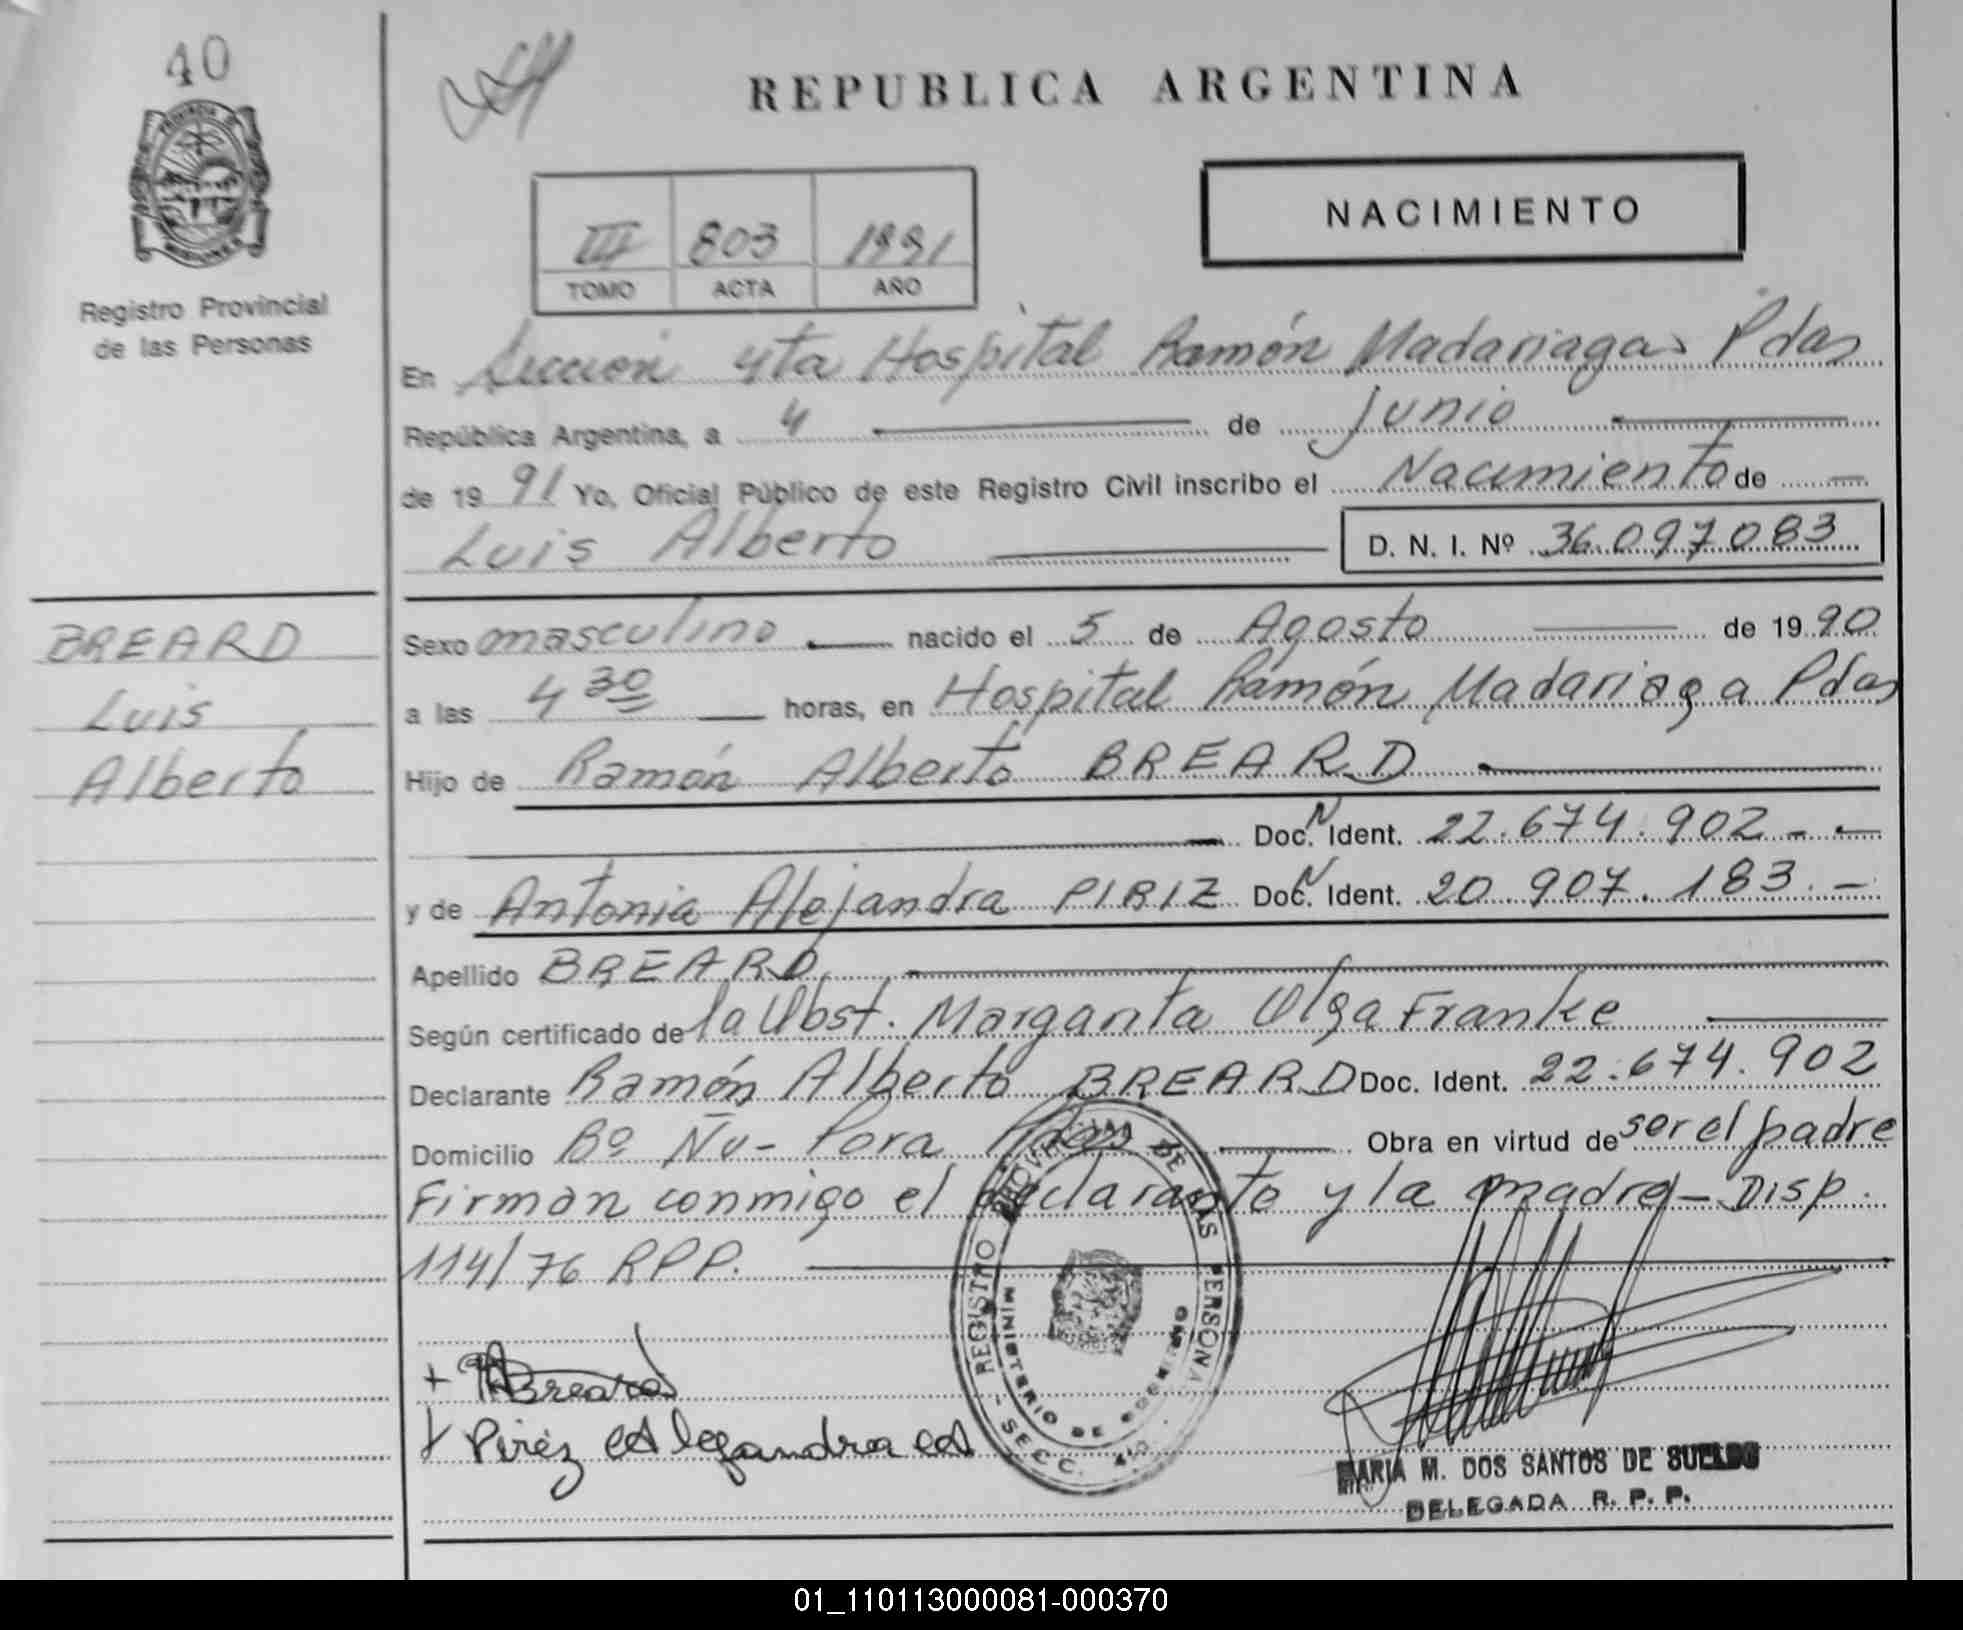 40
REPUBLICA ARGENTINA
NACIMIENTO
III 803 1991
TOMO ACTA AÑO
Registro Provincial
de las Personas
En Sección 4ta Hospital Ramón Madariaga Pdas
República Argentina, a 4 de junio
de 1991 Yo, Oficial Público de este Registro Civil inscribo el Nacimiento de
Luis Alberto D. N. I. Nº 36.097.083
BREARD
Luis
Alberto
Sexo masculino nacido el 5 de Agosto de 1990
a las 4 30 horas, en Hospital Ramón Madariaga Pdas
Hijo de Ramón Alberto BREARD
Doc. N Ident. 22.674.902
y de Antonia Alejandra PIRIZ Doc. N Ident. 20.907.183.
Apellido BREARD
Según certificado de la Obst. Margarita Olga Franke
Declarante Ramón Alberto BREARD Doc. Ident. 22.674.902
Domicilio Bº Ñu-Pora Pdas Obra en virtud de ser el padre
Firman conmigo el declarante y la madre - Disp.
114/76 RPP.
REGISTRO PROVINCIAL DE LAS PERSONAS
MINISTERIO DE GOBIERNO
- SECC. 4ta
+ Breard
+ Piréz Alejandra A
MARIA M. DOS SANTOS DE SUELDO
DELEGADA R. P. P.
01_110113000081-000370